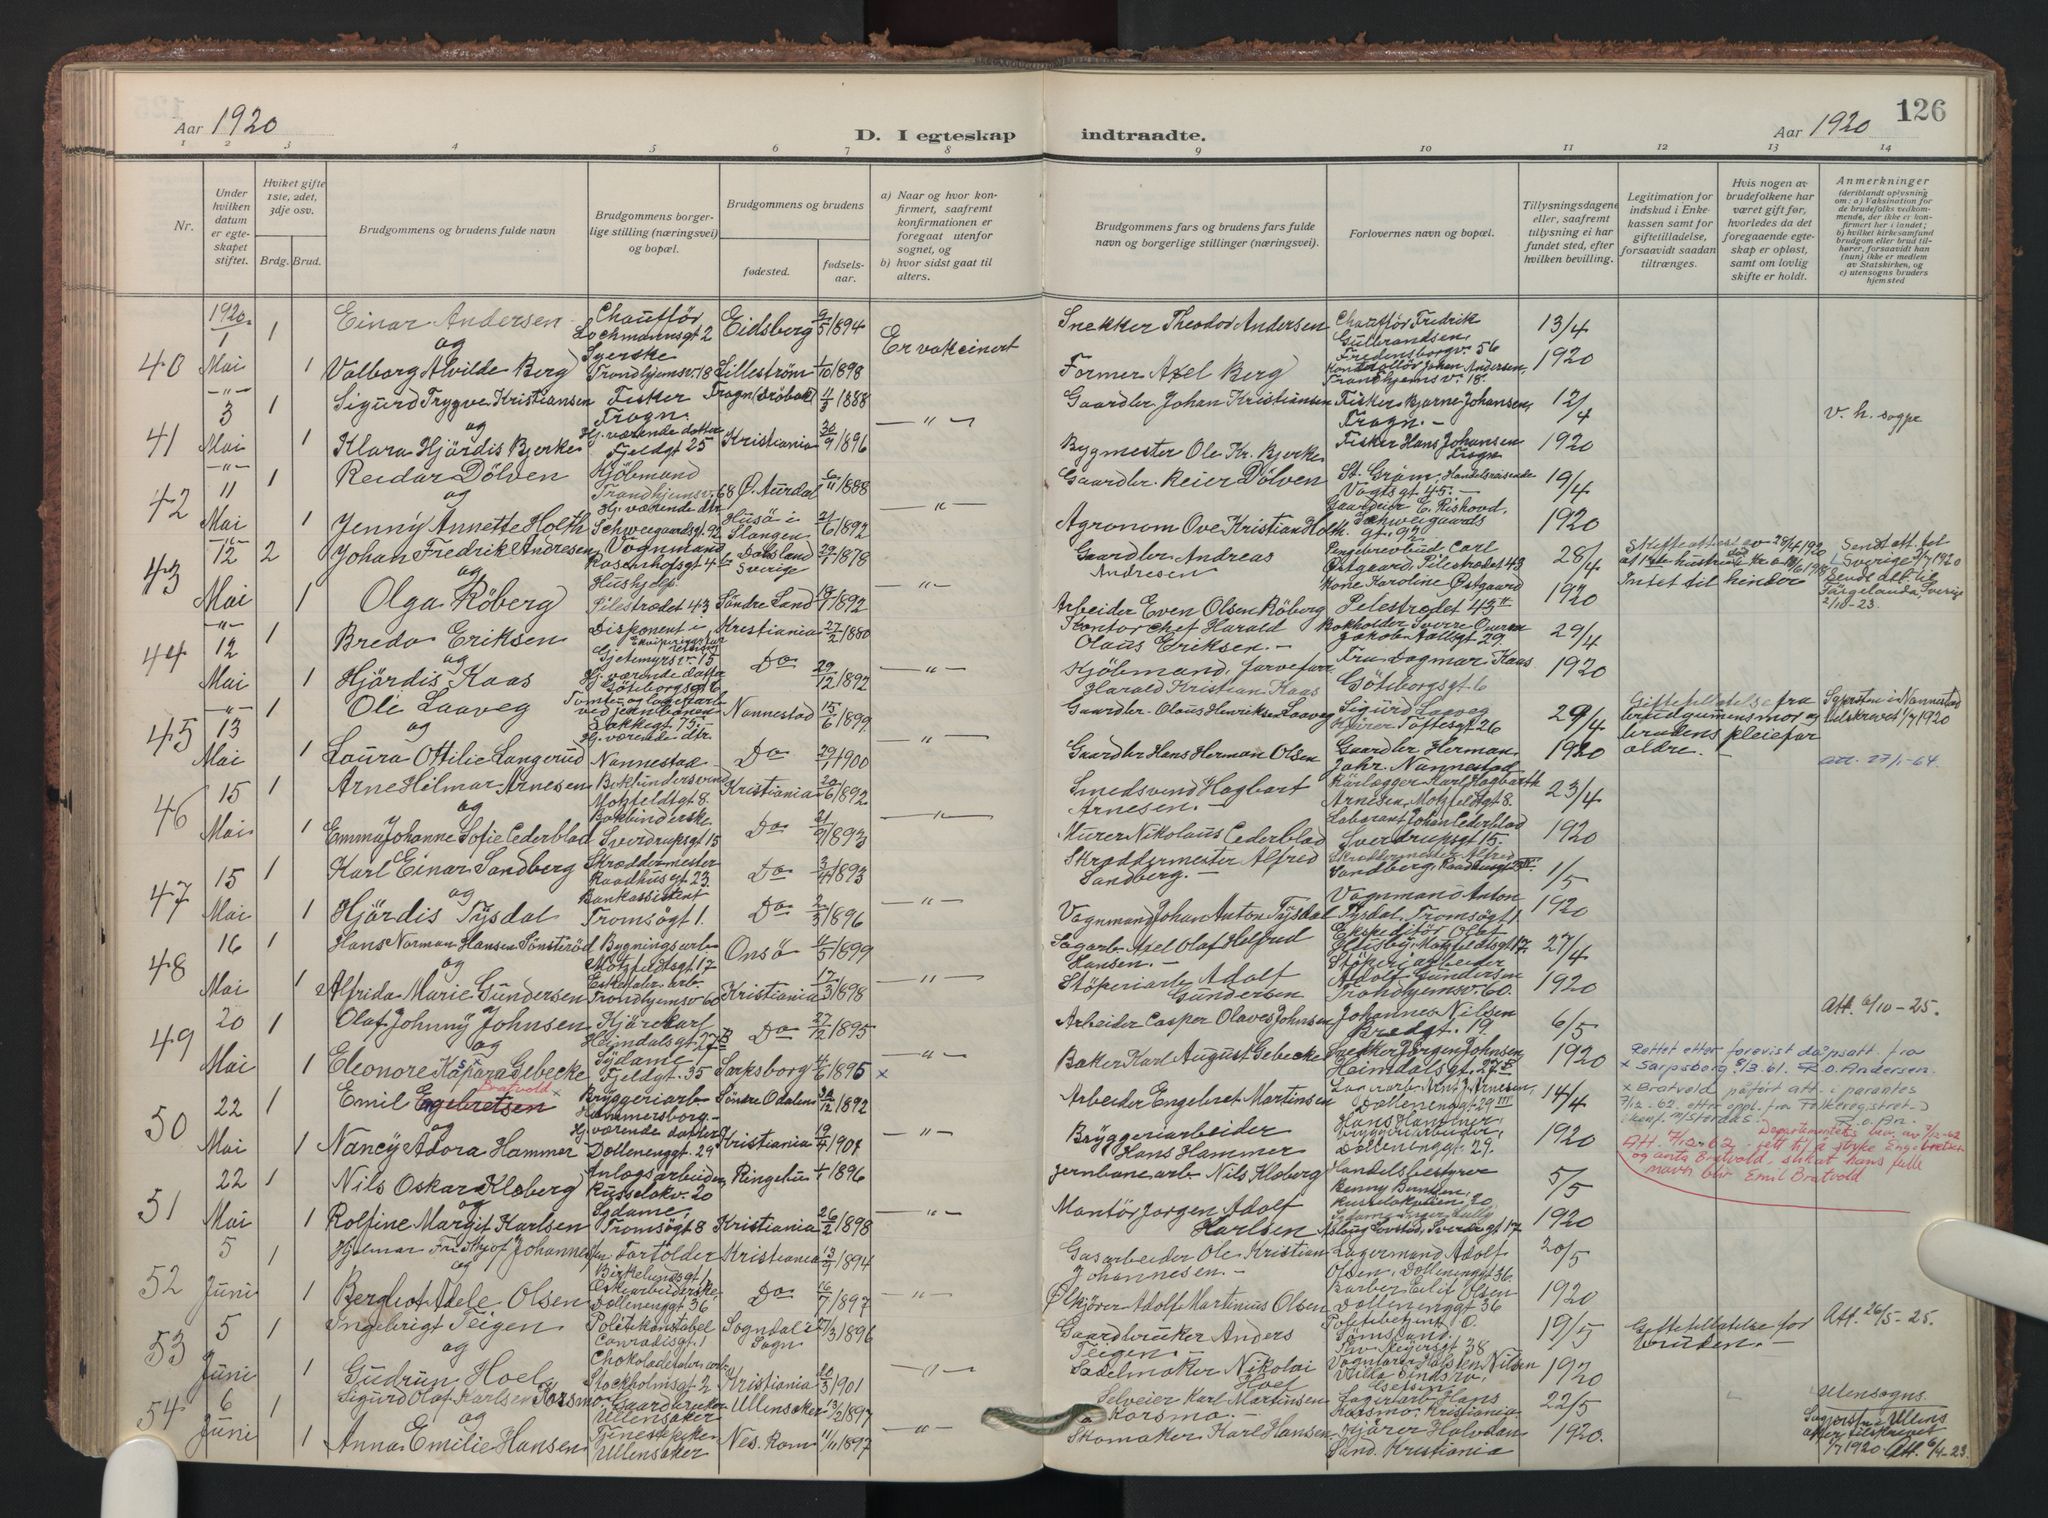 Aar 1920
D. I egteskap indtraadte.
Aar 1920
126
1 2 3 4 5 6 7 8 9 10 11 12 13 14
Nr.
Under hvilken datum er egteskapet stiftet.
Hviket gifte 1ste, 2det, 3dje osv.
Brdg. Brud.
Brudgommens og brudens fulde navn
Brudgommens borgerlige stilling (næringsvei) og bopæl.
Brudgommens og brudens
fødested.
fødselsaar.
a) Naar og hvor konfirmert, saafremt konfirmationen er foregaat utenfor sognet, og
b) hvor sidst gaat til alters.
Brudgommens fars og brudens fars fulde navn og borgerlige stillinger (næringsvei).
Forlovernes navn og bopæl.
Tillysningsdagene eller, saafremt tillysning ei har fundet sted, efter hvilken bevilling.
Legitimation for indskud i Enkekassen samt for giftetilladelse, forsaavidt saadan tiltrænges.
Hvis nogen av brudefolkene har været gift før, hvorledes da det foregaaende egteskap er opløst, samt om lovlig skifte er holdt.
Anmerkninger
(deriblandt oplysning om: a) Vaksination for de brudefolks vedkommende, der ikke er konfirmert her i landet; b) hvilket kirkesamfund brudgom eller brud tilhører, forsaavidt han (hun) ikke er medlem av Statskirken, og c) utensogns bruders hjemsted
40 1920 1 Mai 1 Einar Andersen Chauffør Lochmannsgt 2 Eidsberg 9/5 1894 Er vakcinert Snekker Theodor Andersen Chauffør Fredrik Gulbrandsen, Fredensborgv. 56 13/4
og
1 Valborg Alvilde Berg Syerske Trondhjemsv. 18 Lillestrøm 1/10 1898 Former Axel Berg Johan Andersen, Trondhjemsv. 18. 1920
41 3 Mai 1 Sigurd Trygve Kristiansen Fisker Frogn Frogn (Drøbak) 4/3 1888 Gaardbr. Johan Kristiansen Fisker Bjarne Johansen, Frogn. 12/4 v. h. sogpr
og
1 Klara Hjördis Bjerke Hj. værende datter Fjeldgt 25 Kristiania 30/9 1896 Bygmester Ole Kr. Bjerke Fisker Hans Johansen Frogn 1920
42 11 Mai 1 Reidar Dölven Kjöbmand Trondhjemsv. 68 Ø. Aurdal 6/11 1888 Gaardbr. Reier Dölven St. Grøm, Handelsreisende Vogtsgt 45. 19/4
og
1 Jenny Annette Holth Hj. værende dtr Schweigaardsgt. 92 Husö i Slangen 21/6 1892 Agronom Ove Kristian Holth Gaardeier E. Rishovd, Schweigaards gt. 92 1920
43 12 Mai 2 Johan Fredrik Andresen Vognmand Rosenhofsgt 4 Dalsland Sverige 29/7 1878 Gaardbr Andreas Andresen Pengebrevbud Carl Østgaard, Pilestrædet 43 28/4
og
1 Olga Röberg Hushjelp Pilestrædet 43 Söndre Land 19/1 1892 Arbeider Even Olsen Röberg Kone Karoline Østgaard Pilestrædet 43 II 1920 Intet til hinder
Sendt att. til Sverige 7/7 1920
Sendt att. til Färgelanda, Sverige 2/10-23.
44 12 Mai 1 Bredo Eriksen Disponent i Gjetemyrsv. 15 Kristiania 27/2 1880 Kontorchef Harald Olaus Eriksen.- Bokholder Sverre Jakob Aallsgt 29, 29/4
og
1 Hjördis Kaas Hj. værende datter Göteborgsgt 6 Do 29/12 1892 Kjöbmand, Harald Kristian Kaas Fru Dagmar Kaas Göteborgsgt 6 1920
45 13 Mai Ole Laaveg Nannestad 15/6 1899 Gaardbr. Olaus Henriksen Laaveg Sigurd Laaveg Toftesgt 26 29/4
og
1 Laura Ottilie Langerud Hj. værende dtr. Nannestad Do 29/1 1900 Gaardbr Hans Herman Olsen Gaardbr Herman Nannestad 1920
Giftetilladelse fra brudgummens mor og brudens pleiefor ældre.-
Sognepresten i Nannestad tilskrevet 1/7 1920
att. 27/1-64.
46 15 Mai 1 Arne Hilmar Arnesen Bokbindersvend Motzfeldtgt 8. Kristiania 20/6 1892 Smedsvend Hagbart Arnesen.- Rörlægger Karl Hagbarth Arnesen, Motzfeldtsgt 8. 23/4
og
1 Emma Johanne Sofie Cederblad Bokbinderske Sverdrupsgt 15 Do 21/9 1893 Murer Nikolaus Cederblad Laborant Johan Cederblad Sverdrupsgt 15. 1920
47 15 Mai 1 Karl Einar Sandberg Skræddermester Raadhusgt 23. Do 3/4 1893 Skræddermester Alfred Sandberg.- Skræddermester Alfred Sandberg, Raadhusgt 1/5
og
1 Hjördis Tysdal Bankassistent Tromsögt 1. Do 2/3 1896 Vognmand Johan Anton Tysdal Vognmand Anton Tysdal, Tromsögt 1 1920
48 16 Mai 1 Hans Norman Hansen Sönsteröd Bygningsarb Motzfeldtsgt 17 Onsö 4/5 1899 Sagarb Axel Olaf Helfred Hansen.- Ekspeditör Olaf Motzfeldtsgt 17. 27/4
og
1 Alfrida Marie Gundersen Eskefabr. arb. Trondhjemsv 60 Kristiania 17/3 1898 Stöperiarb Adolf Gundersen Stöperiarbeider Adolf Gundersen Trondhjemsv. 60. 1920
49 20 Mai 1 Olaf Johnny Johnsen Kjörekarl Heimdalsgt 27 B Do 27/12 1895 Arbeider Casper Olaves Johnsen Johannes Nilsen Bredgt. 19. 6/5 Att. 6/10-25.
og
1 Eleonore Kaspara Gebecke Sydame Fjeldgt. 35 Sarpsborg 4/6 1895 x Baker Karl August Gebecke Snekker Jörgen Johnsen Heimdalsgt. 27 B 1920
Rettet etter forevist dåpsatt. fra
x Sarpsborg 9/3.61. R.O. Andersen.
50 22 Mai 1 Emil Engebretsen Bratvold x Bryggeriarb Hammersborg Söndre Odalen 30/12 1892 Arbeider Engebret Martinsen Lagerarb Arnt J. Arnesen, Dællenenggt 29 III 14/4
og
1 Nancy Adora Hammer Hj. værende datter Dællenenggt. 29 Kristiania 19/4 1901 Bryggeriarbeider Hans Hammer Hans Hammer bryggeriarbeider, Dællenenggt 29. 1920
x Bratvold påført att. i parantes 7/12-62 etter oppl. fra Folkeregistret
Departementets bev. av 7/12-62
Att. 7/12-62 rett til å sløyfe Engebretsen og anta Bratvold, slik at hans fulle navn blir Emil Bratvold
51 22 Mai 1 Nils Oskar Kloberg Anlægsarbeider, Russelökv. 20 Ringebu 1/1 1896 Jernbanearb Nils Kloberg Handelsbestyrer Benny Berntsen, Russelökveien 20 5/5
og
1 Rolfine Margit Karlsen Sydame, Tromsögt 8 Kristiania 26/2 1898 Montör Jorgen Adolf Karlsen 1920
52 5 Juni 1 Hjalmar Fridthjof Johannesen Fortolder Birkelundsgt 1 Kristiania 13/9 1894 Gasarbeider Ole Kristian Johannesen.- Lagermand Adolf Olsen, Dællenenggt 36 20/5
og
1 Berghot Adele Olsen Eskearbeiderske, Dællenenggt 36 Do 16/7 1897 Ølkjörer Adolf Martinius Olsen Barber Eilif Olsen Dællenenggt 36 1920
53 5 Juni 1 Ingebrigt Teigen Politikonstabel Conradisgt. 1 Sogndal i Sogn 27/3 1896 Gaardbruker Anders Teigen.- Politibetjent O. Tömsland. Thv. Meyersgt 38 19/5 Giftetilladelse for bruden.- Att. 26/5-25.
og
1 Gudrun Hoel Chokoladefabr. arb. Stockholmsgt. 2 Kristiania 20/3 1901 Sadelmaker Nikolai Hoel Nilsen 1920
54 6 Juni 1 Sigurd Olaf Karlsen Korsmo Gaardbruker Ullensaker Ullensaker 13/2 1897 Selveier Karl Martinsen Korsmo.- Lagerarb Hans Korsmo, Kristiania. 22/5
og
1 Anna Emilie Hansen Tjenestepike Ullensaker Nes. Rom 11/11 1897 Skomaker Karl Hansen Kjörer Halvdan Sand, Kristiania 1920.
Utensogns.
Sognepresten i Ullensaker tilskrevet 1/7 1920 Att. 6/4-23